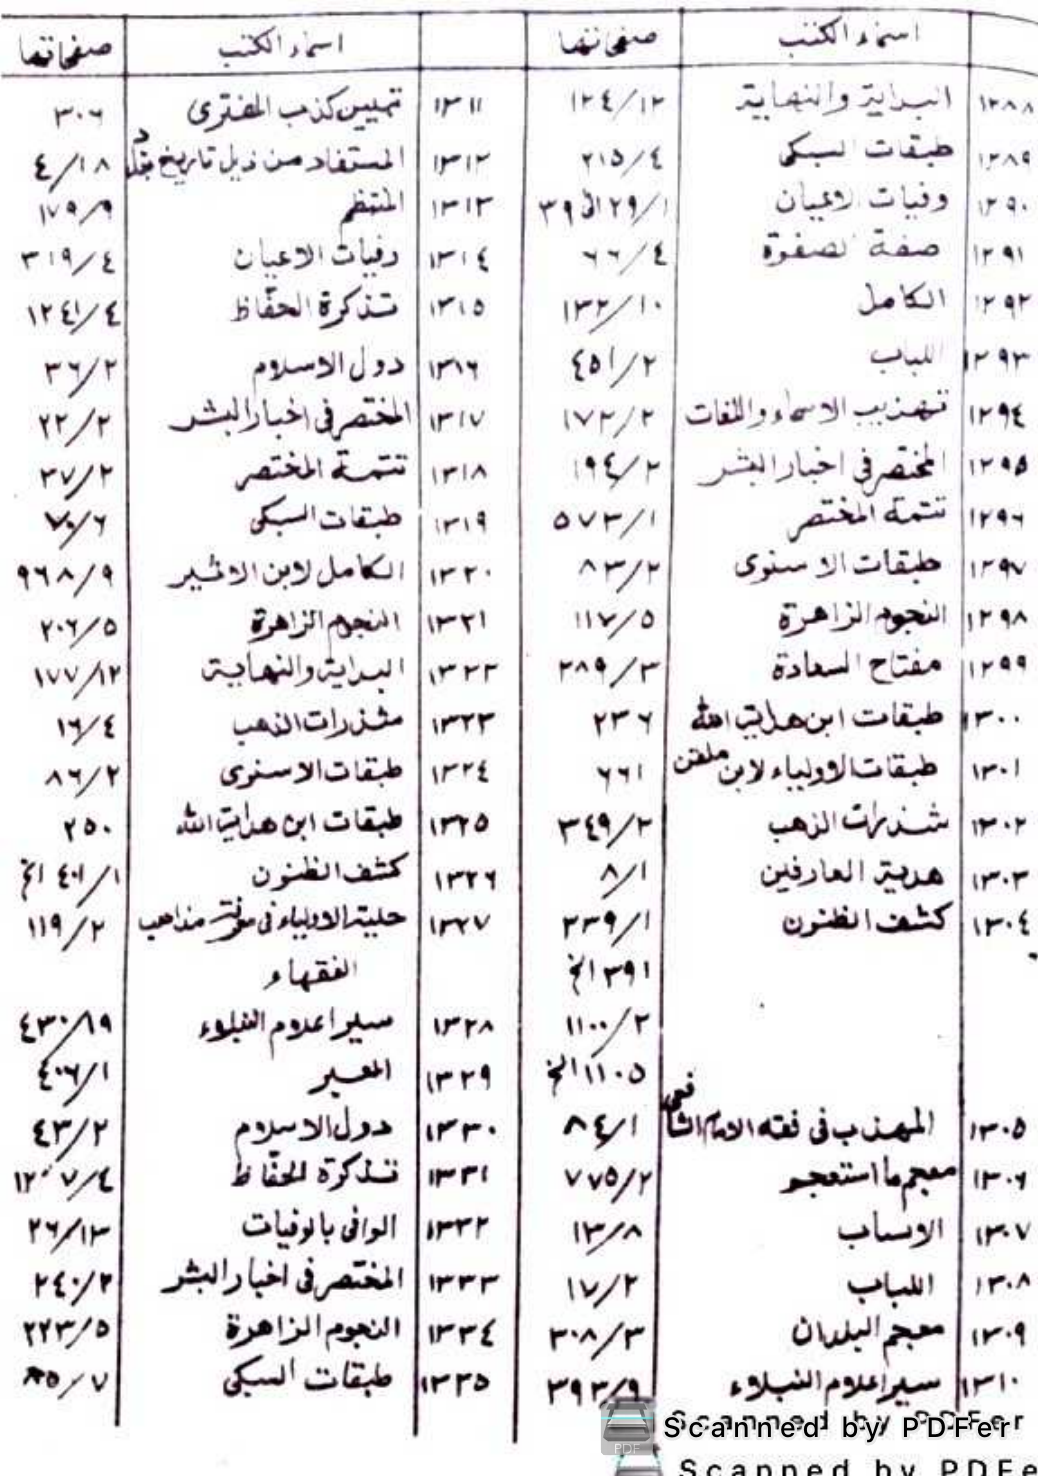 اسماء الكتب صفحاتها
١٢٨٨ البداية والنهاية ١٢٤/١٢
١٢٨٩ طبقات السبكى ٢١٥/٤
١٢٩٠ وفيات الاعيان ٢٩/١ الى ٣٩
١٢٩١ صفة الصفوة ٦٦/٤
١٢٩٢ الكامل ١٣٢/١٠
١٢٩٣ اللباب ٤٥١/٢
١٢٩٤ تهذيب الاسماء واللغات ١٧٢/٢
١٢٩٥ المختصر فى اخبار البشر ١٩٤/٢
١٢٩٦ تتمة المختصر ٥٧٣/١
١٢٩٧ طبقات الاسنوى ٨٣/٢
١٢٩٨ النجوم الزاهرة ١١٧/٥
١٢٩٩ مفتاح السعادة ٢٨٩/٣
١٣٠٠ طبقات ابن هداية الله ٢٣٦
١٣٠١ طبقات الاولياء لابن ملقن ٦٦١
١٣٠٢ شذرات الذهب ٣٤٩/٢
١٣٠٣ هدية العارفين ٨/١
١٣٠٤ كشف الظنون ٣٣٩/١
٣٩١ الخ
١١٠٠/٢
١١٠٥ الخ
١٣٠٥ المهذب فى فقه الامام الشافعى ٨٤/١
١٣٠٦ معجم ما استعجم ٧٧٥/٢
١٣٠٧ الانساب ١٣/٨
١٣٠٨ اللباب ١٧/٢
١٣٠٩ معجم البلدان ٣٠٨/٣
١٣١٠ سير اعلام النبلاء ٣٩٣/٩
اسماء الكتب صفحاتها
١٣١١ تبيين كذب المفترى ٣٠٦
١٣١٢ المستفاد من ذيل تاريخ ٤/١٨
١٣١٣ المنتظم ١٧٩/٩
١٣١٤ وفيات الاعيان ٣١٩/٤
١٣١٥ تذكرة الحفّاظ ١٢٤١/٤
١٣١٦ دول الاسلام ٣٦/٢
١٣١٧ المختصر فى اخبار البشر ٢٢/٢
١٣١٨ تتمة المختصر ٣٧/٢
١٣١٩ طبقات السبكى ٧٠/٦
١٣٢٠ الكامل لابن الاثير ٩٦٨/٩
١٣٢١ النجوم الزاهرة ٢٠٦/٥
١٣٢٢ البداية والنهاية ١٧٧/١٢
١٣٢٣ شذرات الذهب ١٦/٤
١٣٢٤ طبقات الاسنوى ٨٦/٢
١٣٢٥ طبقات ابن هداية الله ٢٥٠
١٣٢٦ كشف الظنون ٤٠١/١ الخ
١٣٢٧ حلية الاولياء فى معرفة مذاهب ١١٩/٢
الفقهاء
١٣٢٨ سير اعلام النبلاء ٤٣٠/١٩
١٣٢٩ العبر ٤٠٦/١
١٣٣٠ دول الاسلام ٤٣/٢
١٣٣١ تذكرة الحفّاظ ١٢٠٧/٤
١٣٣٢ الوافى بالوفيات ٢٦/١٣
١٣٣٣ المختصر فى اخبار البشر ٢٤٠/٢
١٣٣٤ النجوم الزاهرة ٢٢٣/٥
١٣٣٥ طبقات السبكى
Scanned by PDFer
Scanned by PDFe